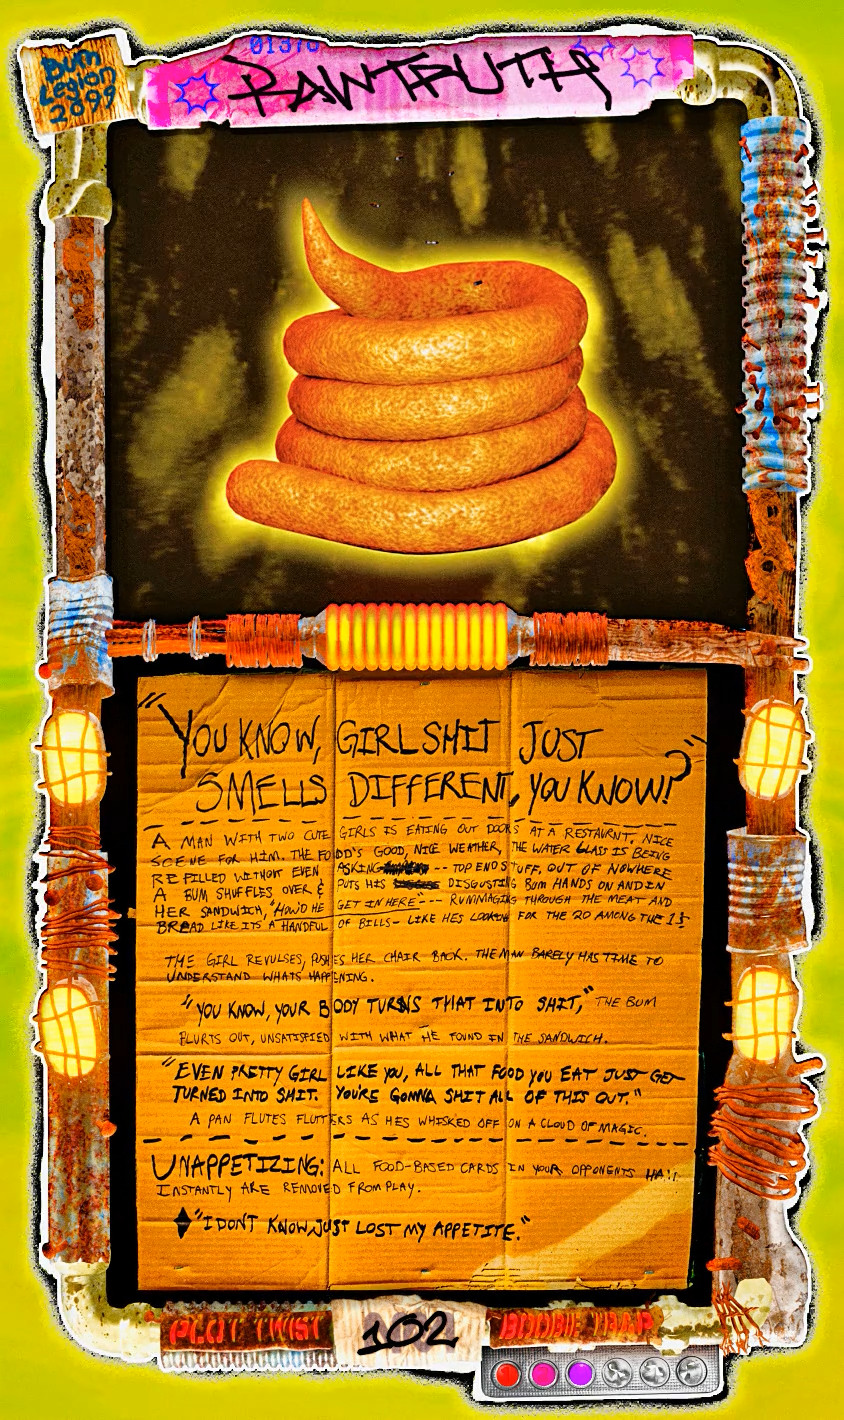 01370
Bum
Legion
2099
RAWTRUTH
"YOU KNOW, GIRL SHIT JUST
SMELLS DIFFERENT, YOU KNOW?"
A MAN WITH TWO CUTE GIRLS IS EATING OUT DOORS AT A RESTAURNT. NICE
SCENE FOR HIM. THE FOOD'S GOOD, NICE WEATHER, THE WATER GLASS IS BEING
REFILLED WITHOUT EVEN ASKING -- TOP END STUFF. OUT OF NOWHERE
A BUM SHUFFLES OVER & PUTS HIS DISGUSTING BUM HANDS ON AND IN
HER SANDWICH, "HOW'D HE GET IN HERE --- RUMMAGING THROUGH THE MEAT AND
BREAD LIKE ITS A HANDFUL OF BILLS- LIKE HES LOOKIN FOR THE 20 AMONG THE 1$
THE GIRL REVULSES, PUSHES HER CHAIR BACK. THE MAN BARELY HAS TIME TO
UNDERSTAND WHATS HAPPENING.
"YOU KNOW, YOUR BODY TURNS THAT INTO SHIT," THE BUM
BLURTS OUT, UNSATISFIED WITH WHAT HE FOUND IN THE SANDWICH.
"EVEN PRETTY GIRL LIKE YOU, ALL THAT FOOD YOU EAT JUST GET
TURNED INTO SHIT. YOU'RE GONNA SHIT ALL OF THIS OUT."
A PAN FLUTES FLUTTERS AS HES WHISKED OFF ON A CLOUD OF MAGIC.
UNAPPETIZING: ALL FOOD-BASED CARDS IN YOUR OPPONENTS
INSTANTLY ARE REMOVED FROM PLAY.
"I DONT KNOW, JUST LOST MY APPETITE."
PLOT TWIST
102
BOOBIE TRAP